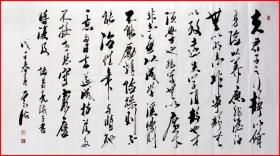 夫君子之行静以修
身俭以养德非澹泊
無以明志非寧静無
以致远夫学须静也才
须学也非学無以廣才
非志無以成学淫慢则
不能励精险躁则不
能治性年与时驰
意与日去遂成枯落多
不接世悲守穷廬
将復何及 诸葛亮诫子书